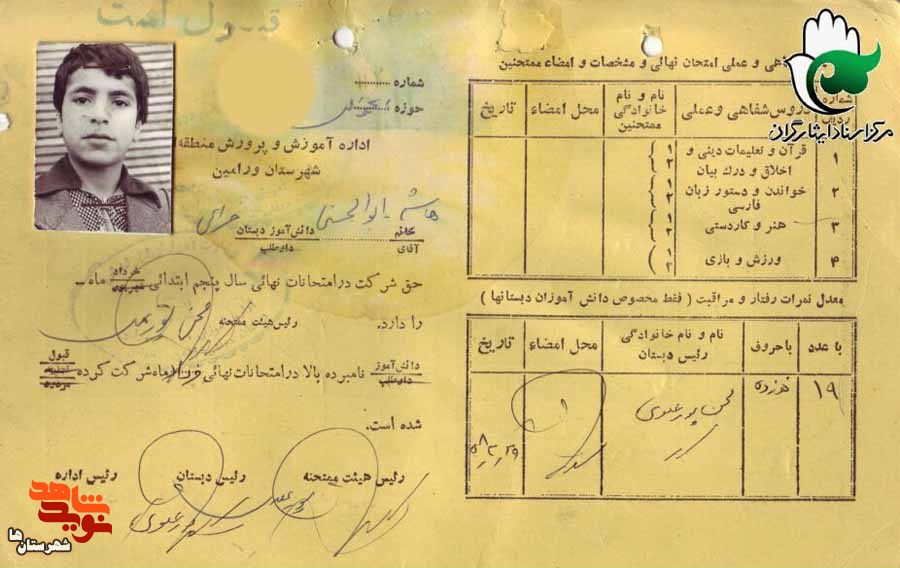 قبول است
شماره ............
حوزه
اداره آموزش و پرورش منطقه
شهرستان ورامین
هاشم ابوالحسنی
خانم
آقای
دانش‌آموز دبستان
داوطلب
حق شرکت در امتحانات نهائی سال پنجم ابتدائی
خرداد
شهریور
ماه
را دارد.
رئیس هیئت ممتحنه
دانش‌آموز
داوطلب
نامبرده بالا در امتحانات نهائی
ماه شرکت کرده
قبول
تجدید
مردود
شده است.
رئیس هیئت ممتحنه
رئیس دبستان
رئیس اداره
نوید شاهد
شهرستان ها
عملی امتحان نهائی و مشخصات و امضاء ممتحنین
شماره ردیف
دروس شفاهی و عملی
نام و نام خانوادگی ممتحنین
محل امضاء
تاریخ
۱ قرآن و تعلیمات دینی و اخلاق و درك بیان ۱ ۲
۲ خواندن و دستور زبان فارسی ۱ ۲
۳ هنر و کاردستی ۱ ۲
۴ ورزش و بازی ۱ ۲
معدل نمرات رفتار و مراقبت ( فقط مخصوص دانش آموزان دبستانها )
با عدد
با حروف
نام و نام خانوادگی رئیس دبستان
محل امضاء
تاریخ
۱۹
نوزده
محسن پور علوی
مرکز اسناد ایثارگران